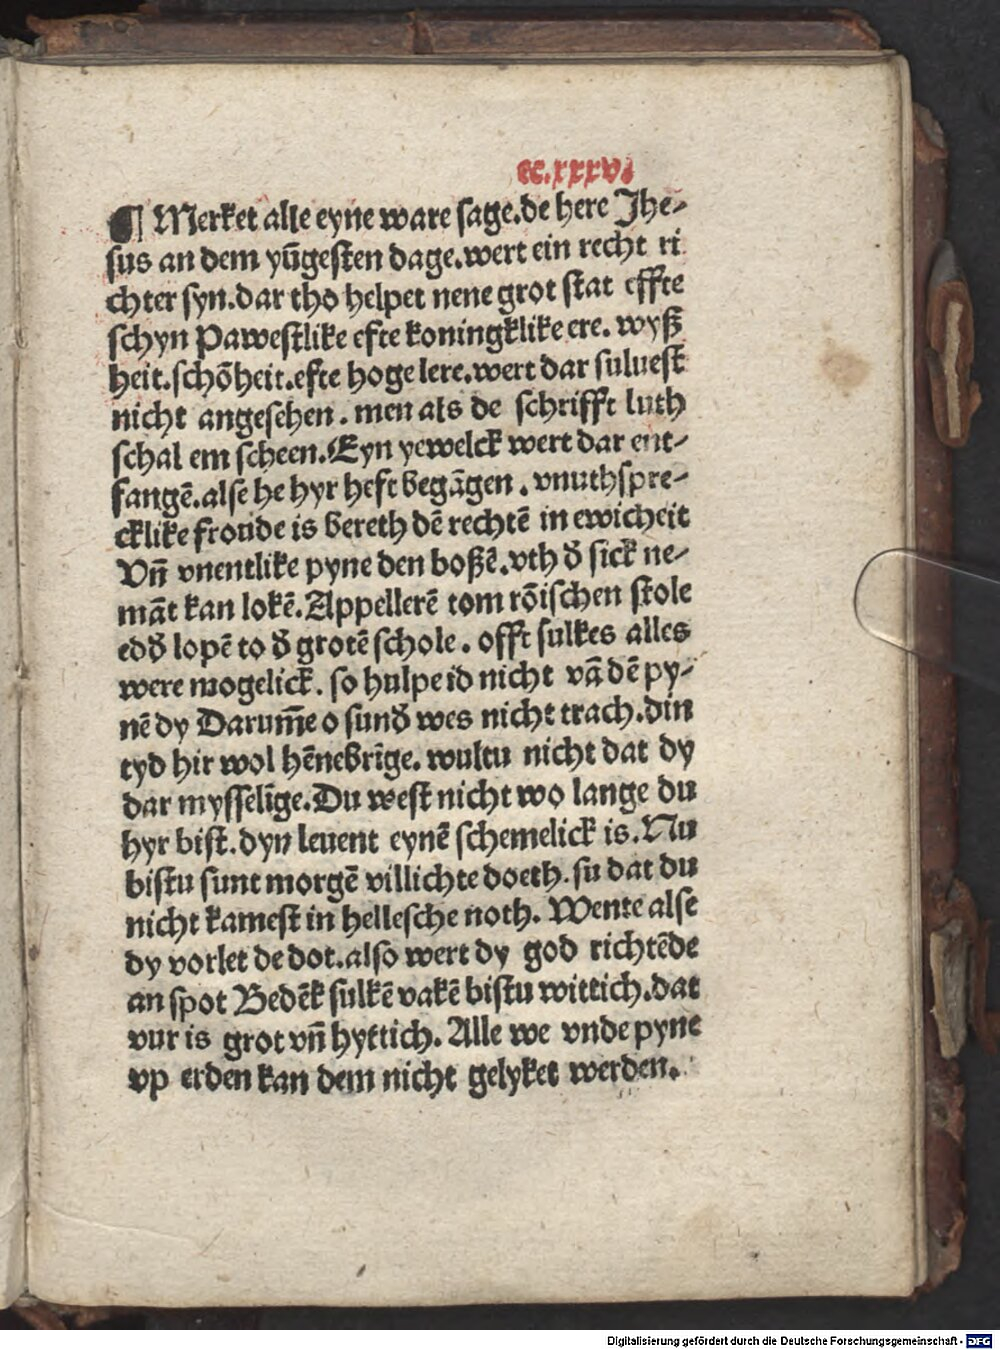 cc.xxxv.
¶ Merket alle eyne ware sage.de here Jhe-
sus an dem yūgesten dage.wert ein recht ri
chter syn.dar tho helpet nene grot stat effte
schyn Pawestlike efte koningklike ere. wyß
heit.schōheit.efte hoge lere.wert dar suluest
nicht angesehen. men als de schrifft luth
schal em scheen.Eyn yewelck wert dar ent-
fangē.alse he hyr heft begāgen. vnuthspre-
cklike froude is bereth dē rechtē in ewicheit
Vn̄ vnentlike pyne den boßē.vth đ sick ne-
māt kan lokē.Appellerē tom rōischen stole
edđ lopē to đ grotē schole. offt sulkes alles
were mogelick. so hulpe id nicht vā dē py-
nē dy Darum̄e o sunđ wes nicht trach.din
tyd hir wol hēnebrīge. wultu nicht dat dy
dar mysselīge.Du west nicht wo lange du
hyr bist.dyn leuent eynē schemelick is.Nu
bistu sunt morgē villichte doeth.su dat du
nicht kamest in hellesche noth. Wente alse
dy vorlet de dot.also wert dy god richtēde
an spot Bedēk sulkē vakē bistu wittich.dat
vur is grot vn̄ hyttich. Alle we vnde pyne
vp erden kan dem nicht gelyket werden.
Digitalisierung gefördert durch die Deutsche Forschungsgemeinschaft - DFG